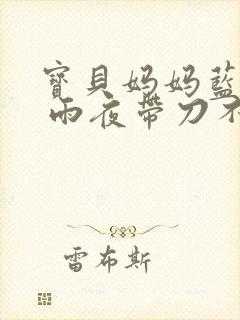 寶貝妈妈藍
雨夜帶刀不
雷布斯